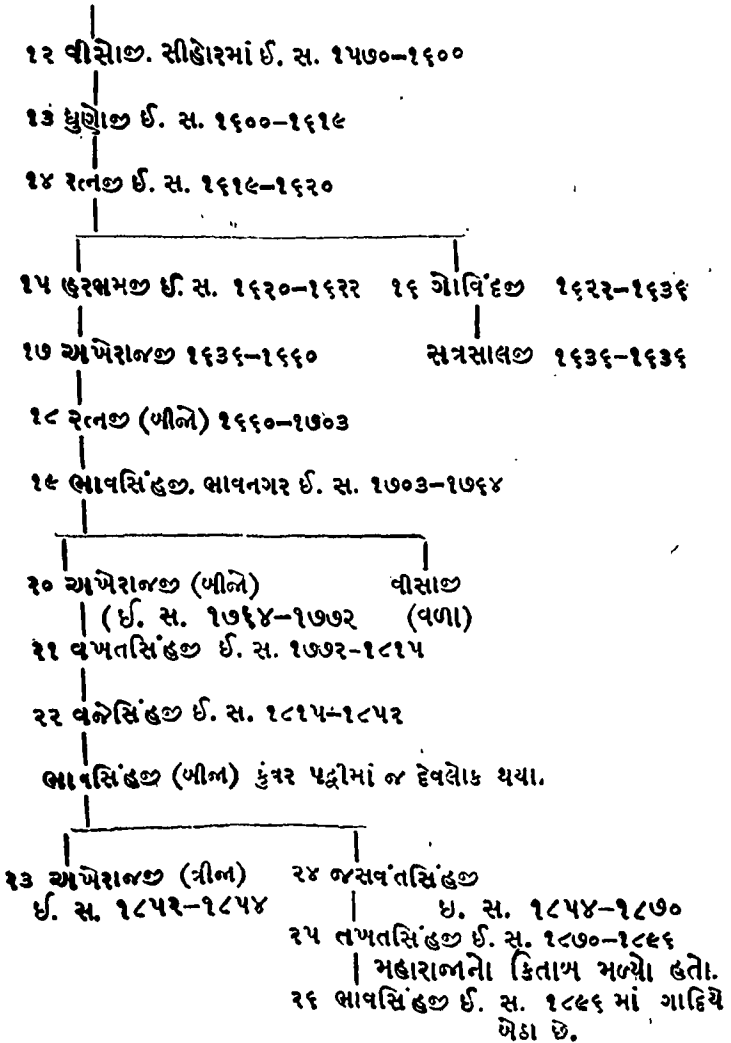 ૧૨ વીસોજી. સીહોરમાં ઈ. સ. ૧૫૭૦–૧૬૦૦
૧૩ ધુણોજી ઈ. સ. ૧૬૦૦–૧૬૧૯
૧૪ રત્નજી ઈ. સ. ૧૬૧૯–૧૬૨૦
૧૫ હરભમજી ઈ. સ. ૧૬૨૦–૧૬૨૨ ૧૬ ગોવિંદજી ૧૬૨૨–૧૬૩૬
૧૭ અખેરાજજી ૧૬૩૬–૧૬૬૦ સત્રસાલજી ૧૬૩૬–૧૬૩૬
૧૮ રત્નજી (બીજો) ૧૬૬૦–૧૭૦૩
૧૯ ભાવસિંહજી. ભાવનગર ઈ. સ. ૧૭૦૩–૧૭૬૪
૨૦ અખેરાજજી (બીજો) વીસાજી
(ઈ. સ. ૧૭૬૪–૧૭૭૨ (વળા)
૨૧ વખતસિંહજી ઈ. સ. ૧૭૭૨-૧૮૧૫
૨૨ વજેસિંહજી ઈ. સ. ૧૮૧૫–૧૮૫૨
ભાવસિંહજી (બીજા) કુંવર પદ્વીમાં જ દેવલોક થયા.
૨૩ અખેરાજજી (ત્રીજા) ૨૪ જસવંતસિંહજી
ઈ. સ. ૧૮૫૨–૧૮૫૪ ઇ. સ. ૧૮૫૪–૧૮૭૦
૨૫ તખતસિંહજી ઈ. સ. ૧૮૭૦–૧૮૯૬
મહારાજાનો કિતાબ મળ્યો હતો.
૨૬ ભાવસિંહજી ઈ. સ. ૧૮૯૬ માં ગાદિયે
બેઠા છે.